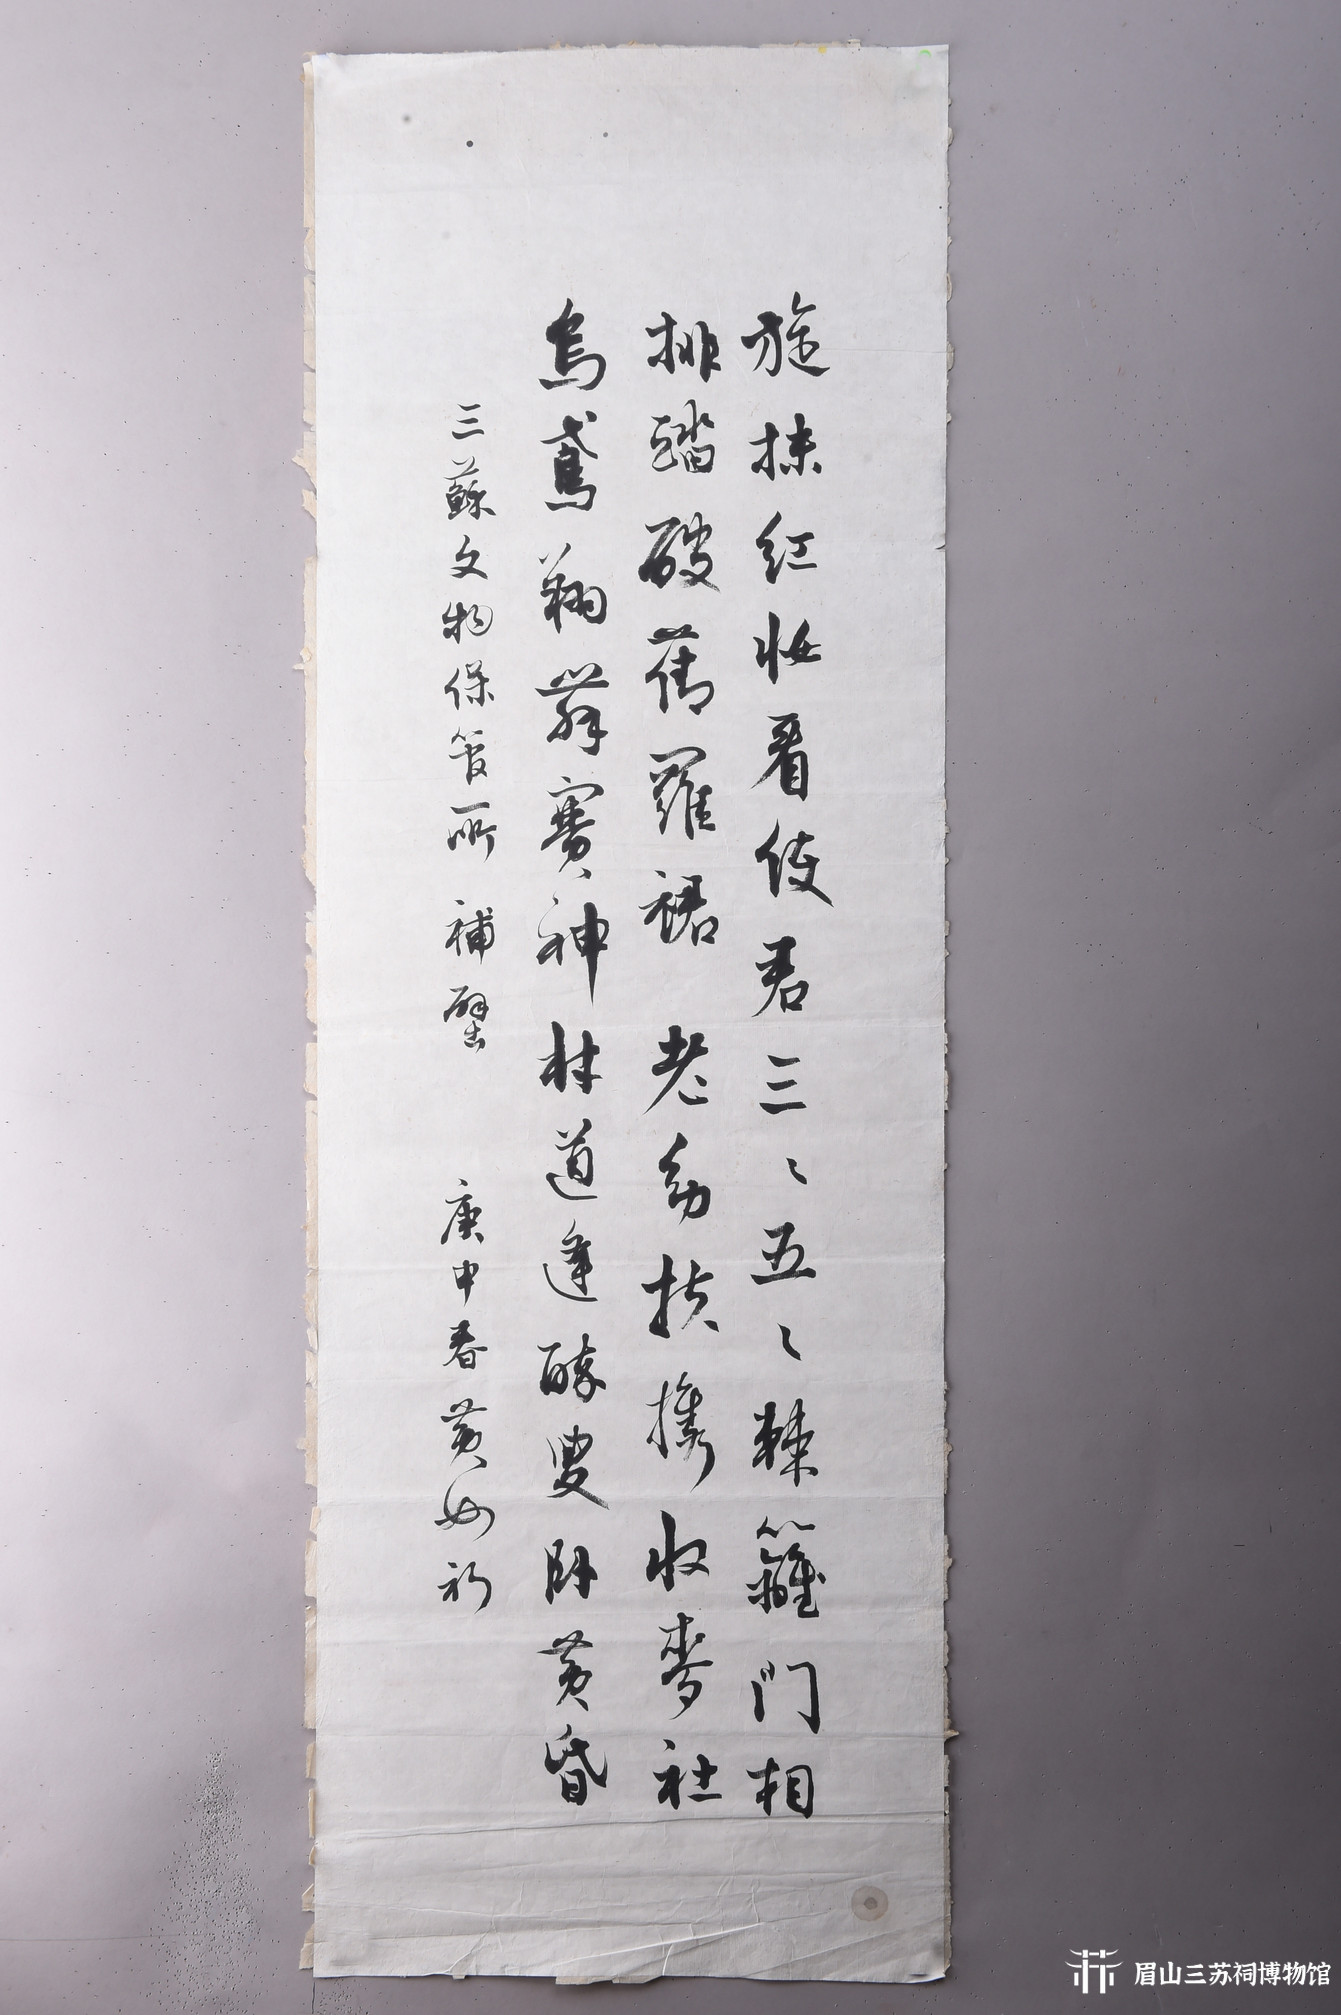 旋抹红妆看使君三〻五〻棘籬门相
排踏破蒨羅裙老幼扶携收麥社
烏鳶翔舞賽神村道逢醉叟卧黄昏
三蘇文物保管所補壁 庚申春黄
眉山三苏祠博物馆